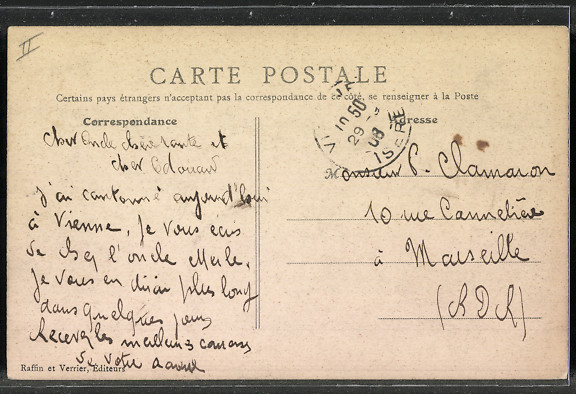 II
CARTE POSTALE
Certains pays étrangers n'acceptant pas la correspondance de ce côté, se renseigner à la Poste
Correspondance
Adresse
Cher Oncle chère tante et
cher Edouard
J'ai cantonné aujourd'hui
à Vienne, je vous écris
de chez l'oncle
Je vous en dirai plus long
dans quelques jours
Recevez les meilleurs
de votre
Raffin et Verrier, Éditeurs
Monsieur P. Clamaron
10 rue Cannebière
à Marseille
(B D R)
10 50
29
08
ISERE